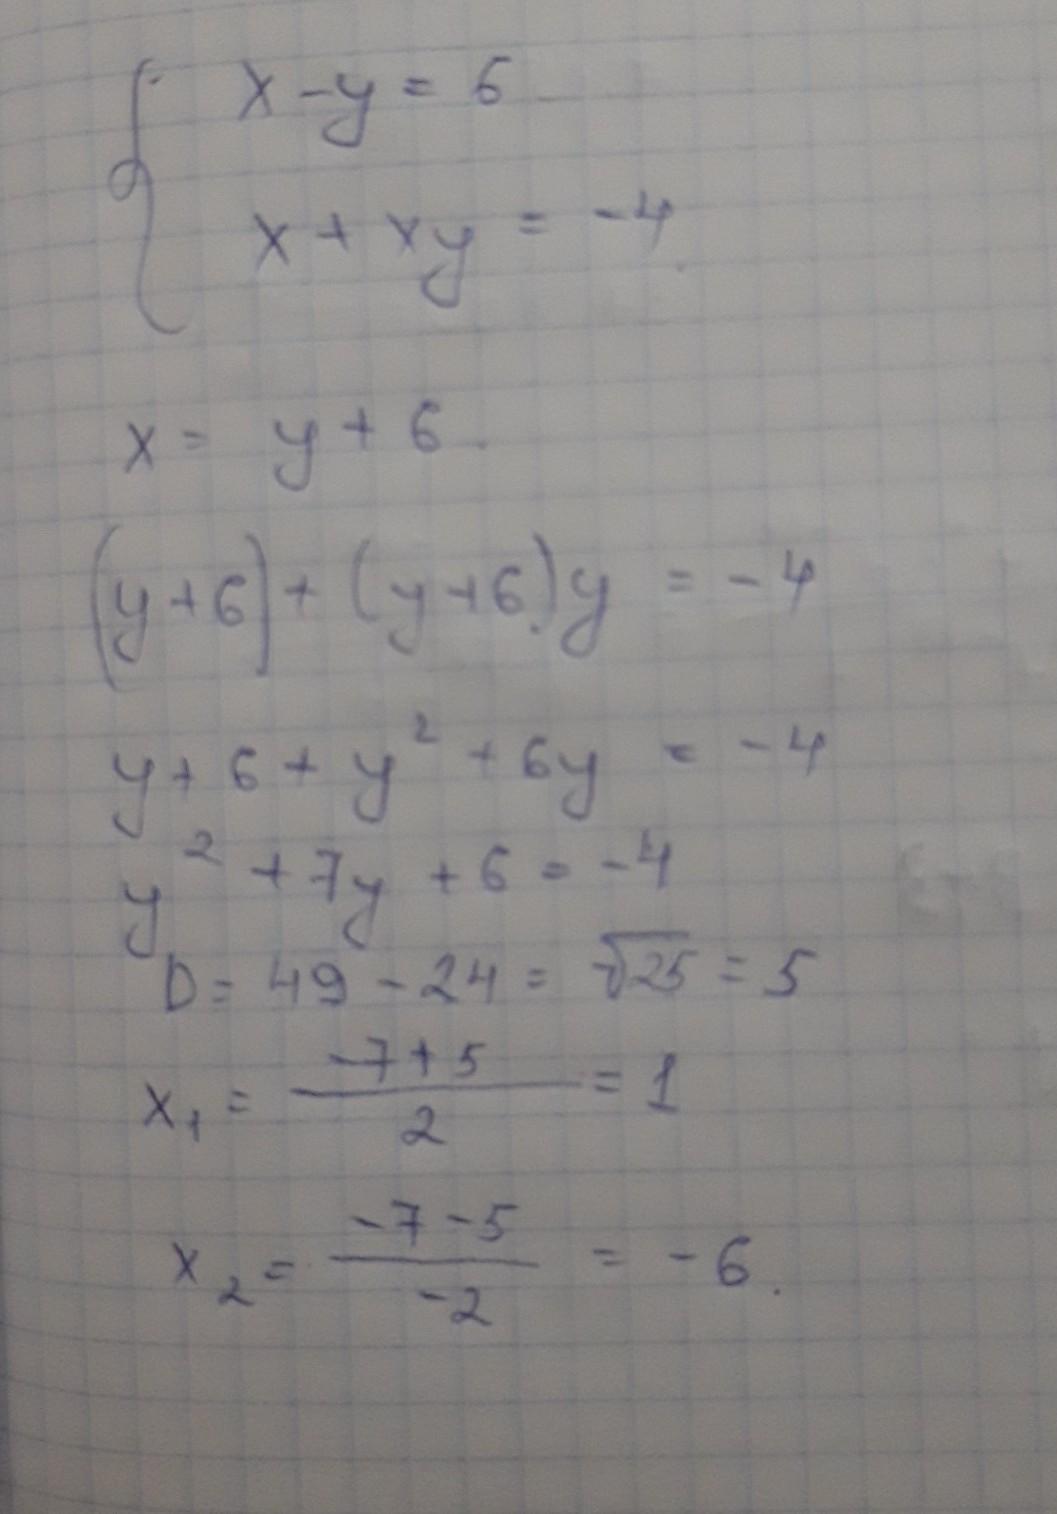 x - y = 6
x + xy = -4
x = y + 6
(y+6) + (y+6)y = -4
y + 6 + y² + 6y = -4
y² + 7y + 6 = -4
D = 49 - 24 = √25 = 5
x₁ = (-7+5)/2 = 1
x₂ = (-7-5)/-2 = -6.